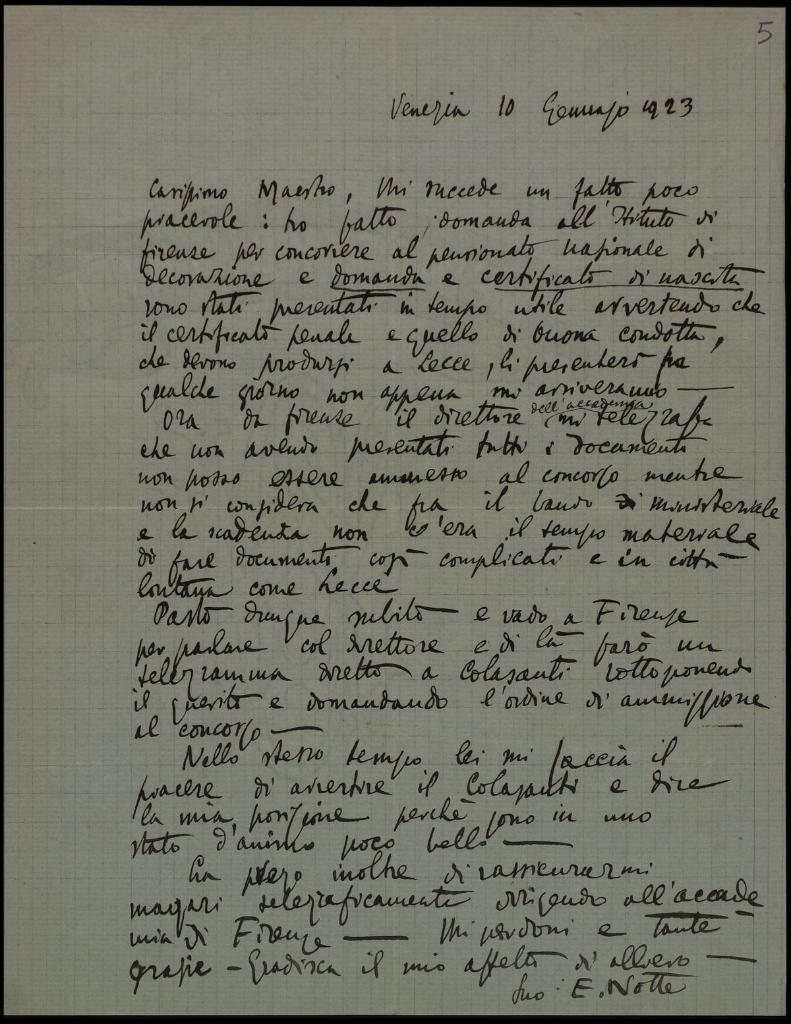 5
Venezia 10 Gennajo 1923
Carissimo Maestro, Mi succede un fatto poco
piacevole: ho fatto domanda all'Istituto di
firenze per concorrere al pensionato nazionale di
decorazione e domanda e certificato di nascita
sono stati presentati in tempo utile avvertendo che
il certificato penale e quello di buona condotta,
che devono prodursi a Lecce, li presenterò fra
qualche giorno non appena mi arriveranno —
Ora da firenze il direttore dell'accademia mi telegrafa
che non avendo presentati tutti i documenti
non posso essere ammesso al concorso mentre
non si considera che fra il bando ministeriale
e la scadenza non c'era il tempo materiale
di fare documenti così complicati e in città
lontana come Lecce
Parto dunque subito e vado a Firenze
per parlare col direttore e di là farò un
telegramma diretto a Colasanti sottoponendo
il quesito e domandando l'ordine di ammissione
al concorso —
Nello stesso tempo lei mi faccia il
piacere di avvertire il Colasanti e dire
la mia posizione perchè sono in uno
stato d'animo poco bello —
La prego inoltre di rassicurarmi
magari telegraficamente dirigendo all'accade
mia di Firenze — Mi perdoni e tante
grazie – Gradisca il mio affetto di allievo —
Suo: E. Notte